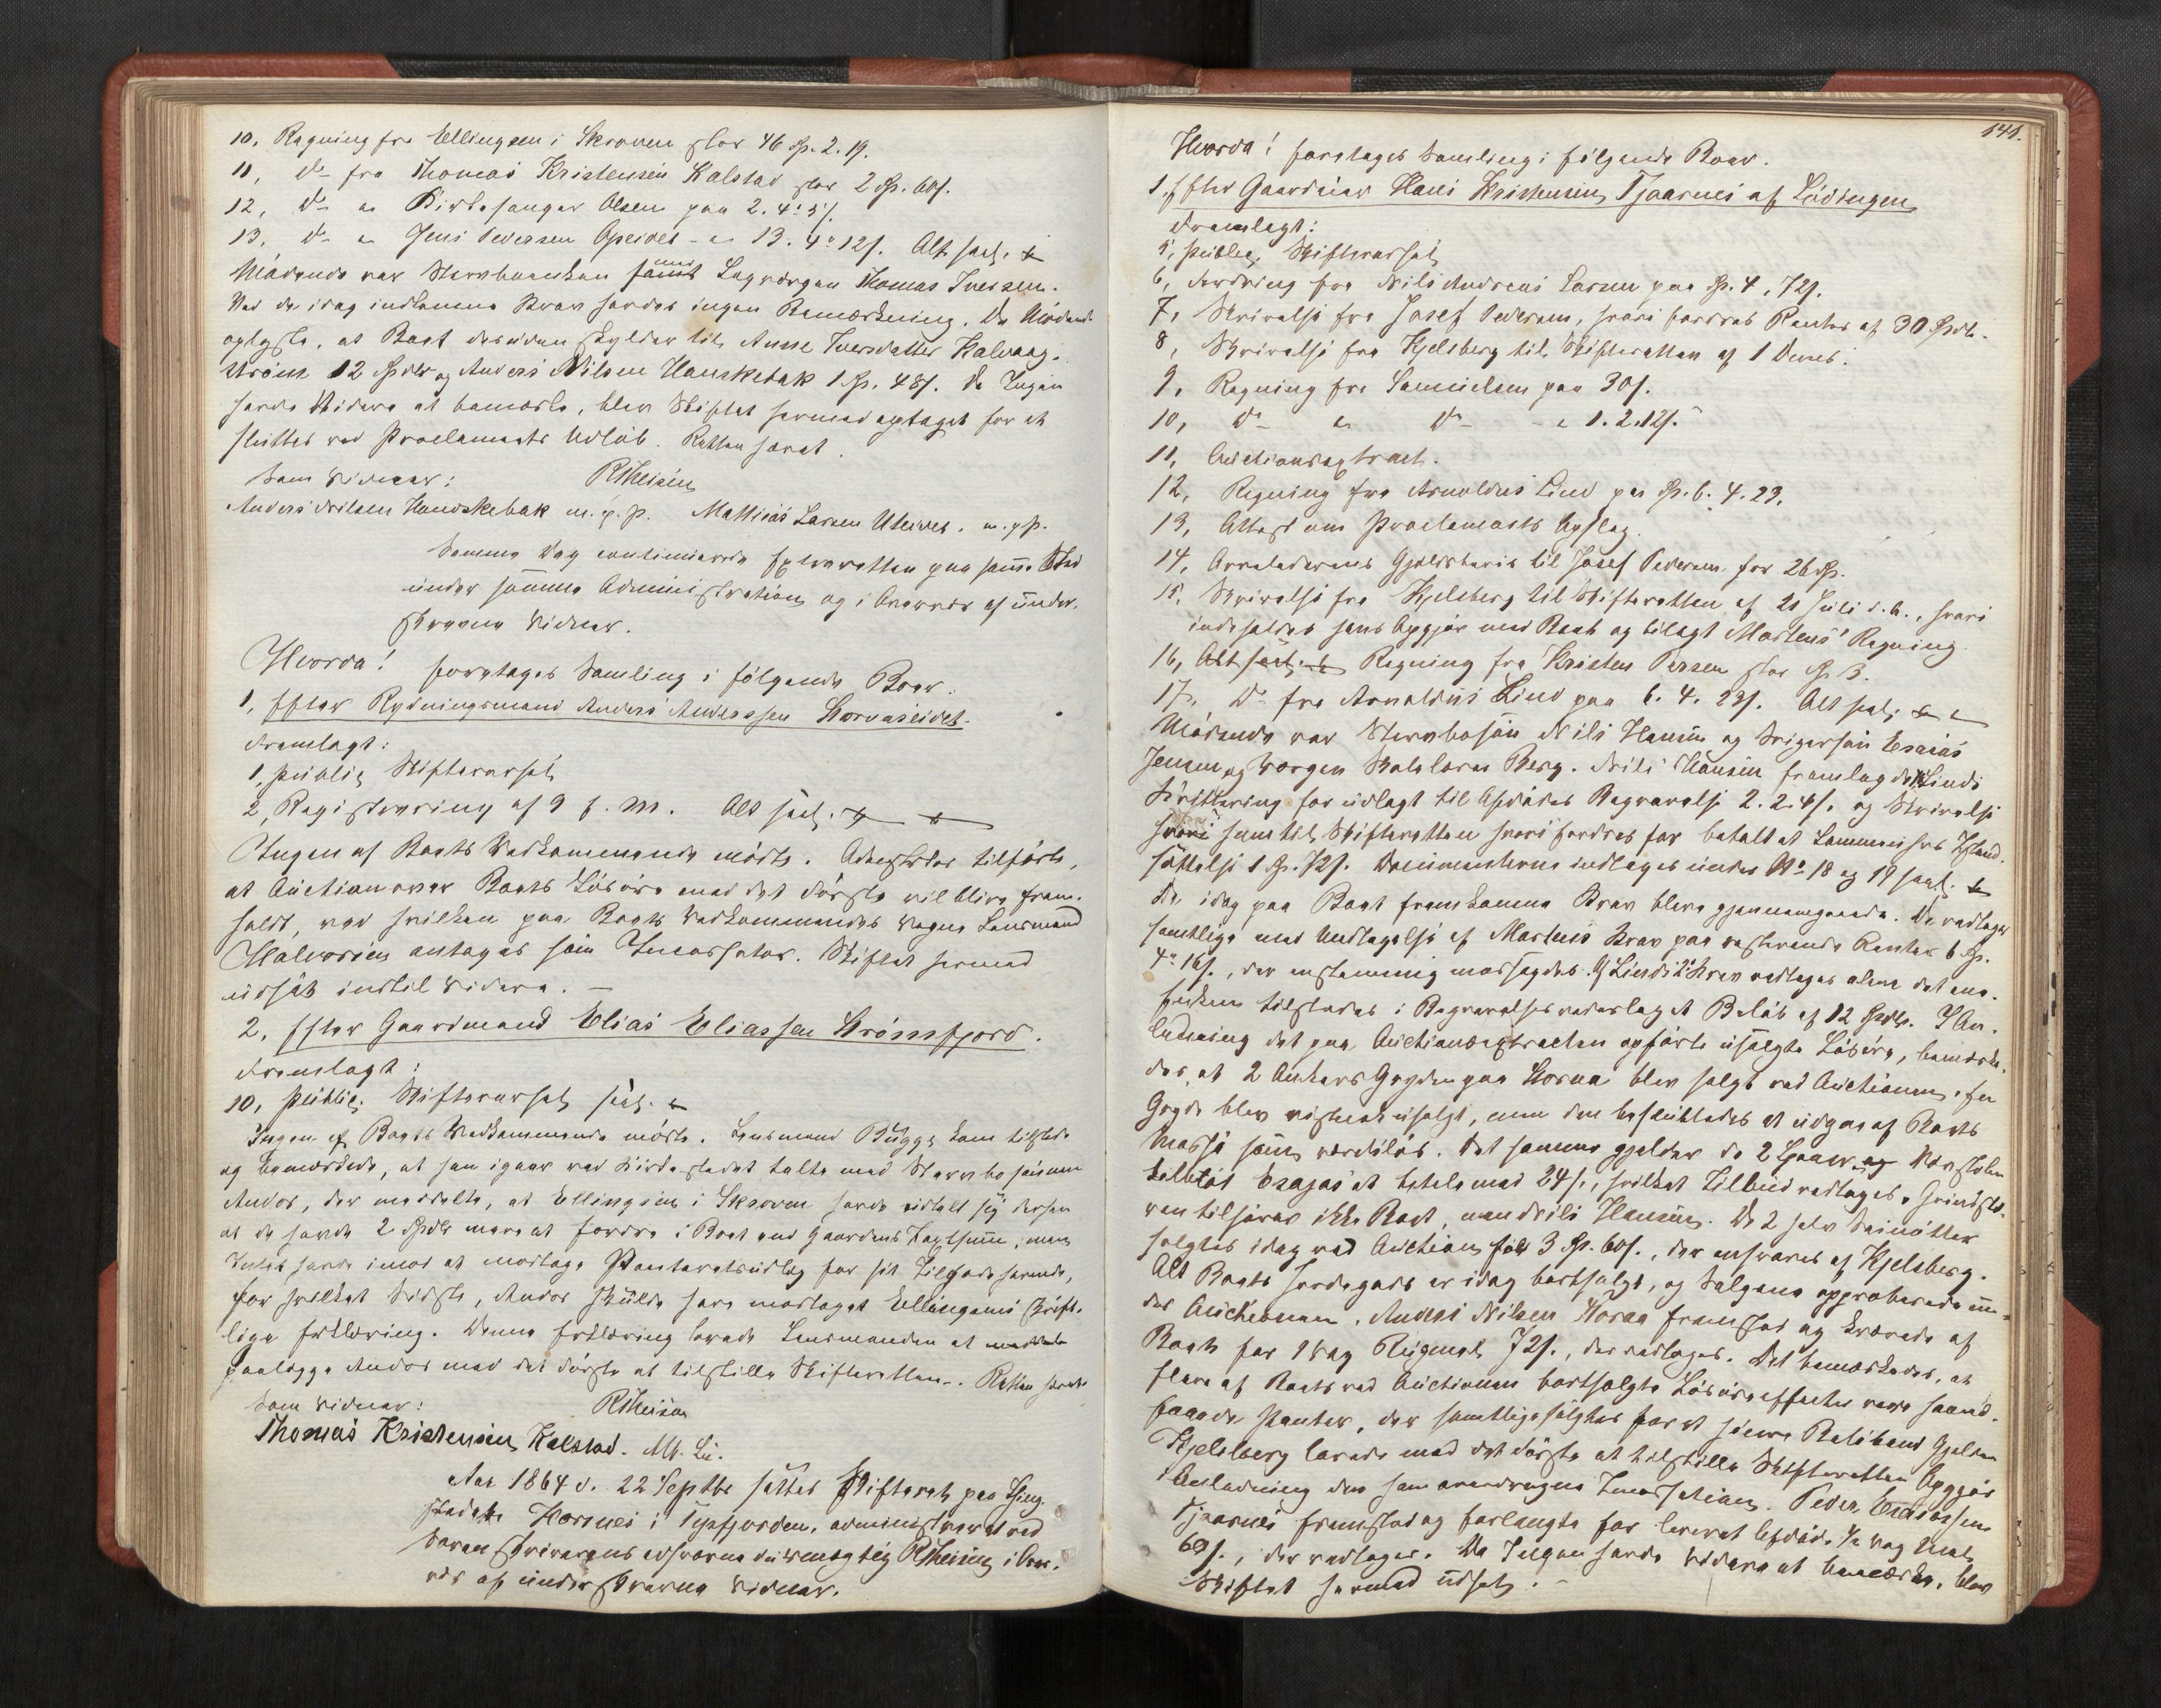 10, Regning fra Ellingsen i Skroven stor 46 Sp. 2. 19.
11, do fra Thomas Kristensen Kalstad stor 2 Sp. 60 s.
12, do " Kirkesanger Olsen paa 2. 4. 3 s.
13, do " Jens Pedersen Opeidet - " 13. 4. 12 s. Alt saal.
Mødende var Stervboenken samt med Lagværgen Thomas Iversen.
Ved de idag indkomne Krav havdes ingen Bemærkning. De Mødende
oplyste, at Boet desuden skylder til Anne Iversdatter Kalvaag-
strøm 12 Spdlr og Anders Nilsen Hanskebak 1 Sp. 48 s. Da Ingen
havde Videre at bemærke, blev Skiftet hermed optaget for at
sluttes ved Proclamaets Udløb. Retten hævet.
Som Vidner: RTheisen
Anders Nilsen Handskebak m. p. P. Mathias Larsen Uteidet. m. p P.
Samme Dag continuerede Extraretten paa samme Sted
under samme Administration og i Overvær af under-
skrevne Vidner.
Hvorda! foretages Samling i følgende Boer.
1, Efter Rydningsmand Anders Andersen Horvaseidet.
Fremlagt:
1, Public. Skifterærsel
2, Registrering af 9 f. M. Alt saal.
Ingen af Boets Vedkommende mødte. Adm. tilførte,
at Auction over Boets Løsøre med det Første vil blive frem-
holdt, ved hvilken paa Boets Vedkommendes Vegne Lensmand
Halvorsen antages som Incassator. Skiftet hermed
udsat indtil Videre. —
2, Efter Gaardmand Elias Eliassen Strømsfjord.
Fremlagt:
10, Public. Skifterærsel saal.
Ingen af Boets Vedkommende mødte. Lensmand Bugge kom tilstede
og bemærkede, at han igaar ved Kirkestedet talte med Stervbosønnen
Andor, der meddelte, at Ellingsen i Skroven havde udtalt sig derhen
at de havde 2 Spdlr mere at fordre i Boet end Gaardens Taxtsum, men
Intet havde imod at modtage Panteretsudlæg for sit Tilgodehavende,
for hvilket Sidste, Andor skulde have modtaget Ellingsens skrift-
lige Erklæring. Denne Erklæring lovede Lensmanden at
paalægge Andor med det Første at tilstille Skifteretten. Retten hævet
Som Vidner: RTheisen
Thomas Kristensen Kalstad. M. Li.
Aar 1864 d. 22 Septbr sattes Skifteret paa Thing-
stedet Horsnes i Tysfjorden, administreret ved
Sorenskriverens edsvorne Fuldmægtig RTheisen i Over-
vær af underskrevne Vidner.
141.
Hvorda! foretages Samling i følgende Boer.
1, Efter Gaardeier Hans Kristensen Tjaarnes af Lødingen
Fremlagt:
5, Public. Skifterærsel
6, Fordring fra Nils Andreas Larsen paa Sp. 4, 72 s.
7, Skrivelse fra Josef Pedersen, hvori fordres Renter af 30 Spdlr.
8, Skrivelse fra Kjelsberg til Skifteretten af 1 Dennes.
9, Regning fra Samuelsen paa 30 s.
10, do " do - " 1. 2. 12 s.
11, Auctionsextract.
12, Regning fra Arnoldus Lind paa Sp. 6. 4. 23.
13, Attest om Proclamaets Opslag.
14, Arveladerens Gjeldsbevis til Josef Pedersen for 26 Sp.
15, Skrivelse fra Kjelsberg til Skifteretten af 21 Juli d. A., hvori
indeholdes hans Opgjør med Boet og tilagt Martens' Regning.
16, Alt saal. Regning fra Kristen Persen stor Sp. 3.
17, do fra Arnoldus Lind paa 6. 4. 23 s. Alt saal.
Mødende var Stervbosøn Nils Hansen og Svigersøn Esaias
Jensen og Værgen Skolelærer Berg. Nils Hansen fremlagde Linds
Erklæring for udlagt til Afdødes Begravelse 2. 2. 4 s. og Skrivelse
fra ham til Skifteretten hvori fordres for betalt at Lommeuhrs Istand-
sættelse 1 Sp. 72 s. Documenterne indlagdes under No 18 og 19 saal.
De idag paa Boet fremkomne Krav bleve gjennemgaaede. De vedtoges
samtlige med Undtagelse af Martens Krav paa resterende Renter 6 Sp.
4. 16 s., der enstemmig modsagdes. Af Linds 2 Krav vedtoges alene det ene.
Enken tilstodes i Begravelsesvederlag et Beløb af 12 Spdlr. I An-
ledning det paa Auctionsextracten opførte usolgte Løsøre, bemærke-
des, at 2 Ankers Gryden paa Horna blev solgt ved Auctionen, en
Gryde blev vistnok usolgt, men den besluttedes at udgaa af Boets
Masse som værdiløs. Det samme gjelder de 2 Ljaaer og Vævstolen
Esajas at betale med 24 s., hvilket Tilbud vedtoges. Grindste-
nen tilhører ikke Boet, men Nils Hansen. De 2 halve Steinøtter
solgtes idag ved Auction for 3 Sp. 60 s., der ansvares af Kjelsberg.
Alt Boets Jordegods er idag bortsolgt, og Salgene approberede un-
der Auctionen. Anders Nilsen Horna fremstod og krævede af
Boet for 1 Vog Rugmel 72 s., der vedtoges. Det bemærkedes, at
flere af Boets ved Auctionen bortsolgte Løsøreeffecter vare haand-
faaede Panter, der samtlige solgtes for at hæve Beløbens Gjelden
Kjelsberg lovede med det Første at tilstille Skifteretten Opgjør
i Anledning den ham overdragne Incassation. Peder Esaiassen
Tjaarnes fremstod og forlangte for leveret Afdøde ½ Vog Mel
60 s., der vedtoges. Da Ingen havde Videre at bemærke, blev
Skiftet hermed udsat. —